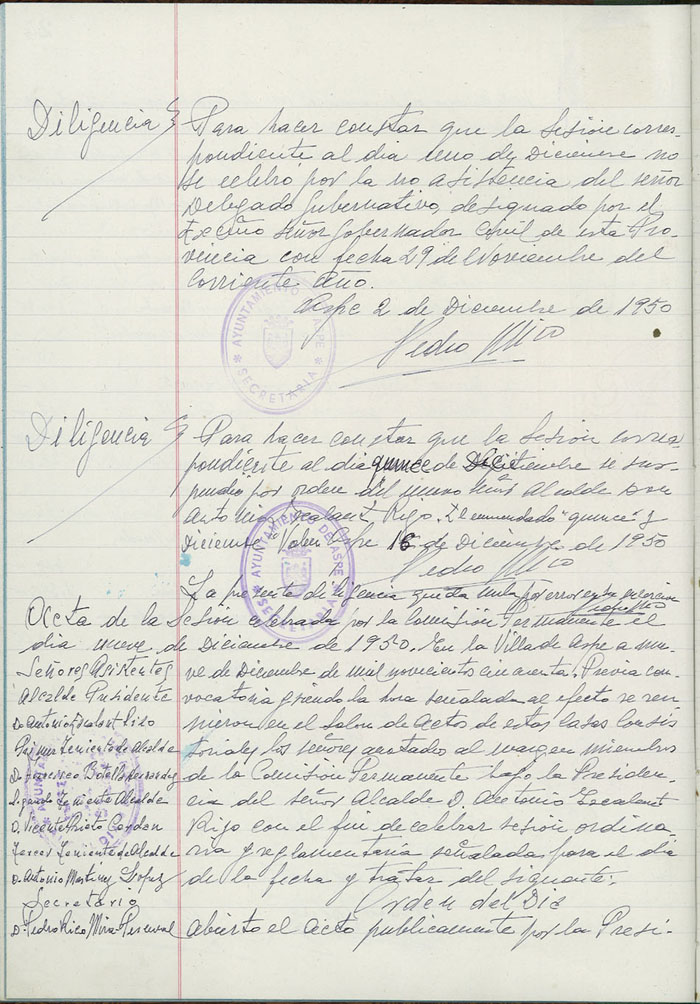 Diligencia
Para hacer constar que la sesión corres-
pondiente al dia uno de Diciembre no
se celebro por la no asistencia del señor
Delegado Gubernativo, designado por el
Excmo Señor Gobernador Civil de esta Pro-
vincia con fecha 29 de Noviembre del
Corriente año.
Aspe 2 de Diciembre de 1950
Pedro Rico
AYUNTAMIENTO DE ASPE
SECRETARIA
Diligencia
Para hacer constar que la sesión corres-
pondiente al dia quince de Diciembre se sus-
pendio por orden del mismo Alcalde Don
Antonio Escalant Rizo. El enmendado "quince" y
Diciembre. Valen Aspe 16 de Diciembre de 1950
Pedro Rico
AYUNTAMIENTO DE ASPE
SECRETARIA
La presente diligencia queda nula por error
Acta de la Sesion celebrada por la Comisión Permanente el
dia nueve de Diciembre de 1950. En la Villa de Aspe a nue-
ve de Diciembre de mil novecientos cincuenta. Previa con-
vocatoria y siendo la hora señalada al efecto se reu-
nieron en el salon de Actos de estas Casas Consis
toriales los señores anotados al margen miembros
de la Comisión Permanente bajo la Presiden-
cia del señor Alcalde D. Antonio Escalant
Rizo con el fin de celebrar sesión ordina-
ria y reglamentaria señalada para el dia
de la fecha y tratar del siguiente:
Orden del Dia
Abierto el Acto publicamente por la Presi-
Señores Asistentes
Alcalde Presidente
D. Antonio Escalant Rizo
Primer Teniente de Alcalde
D. Francisco Botella
Segundo Teniente Alcalde
D. Vicente Prieto Cerdan
Tercer Teniente de Alcalde
D. Antonio Martinez Lopez
Secretario
D. Pedro Rico Mira Perceval